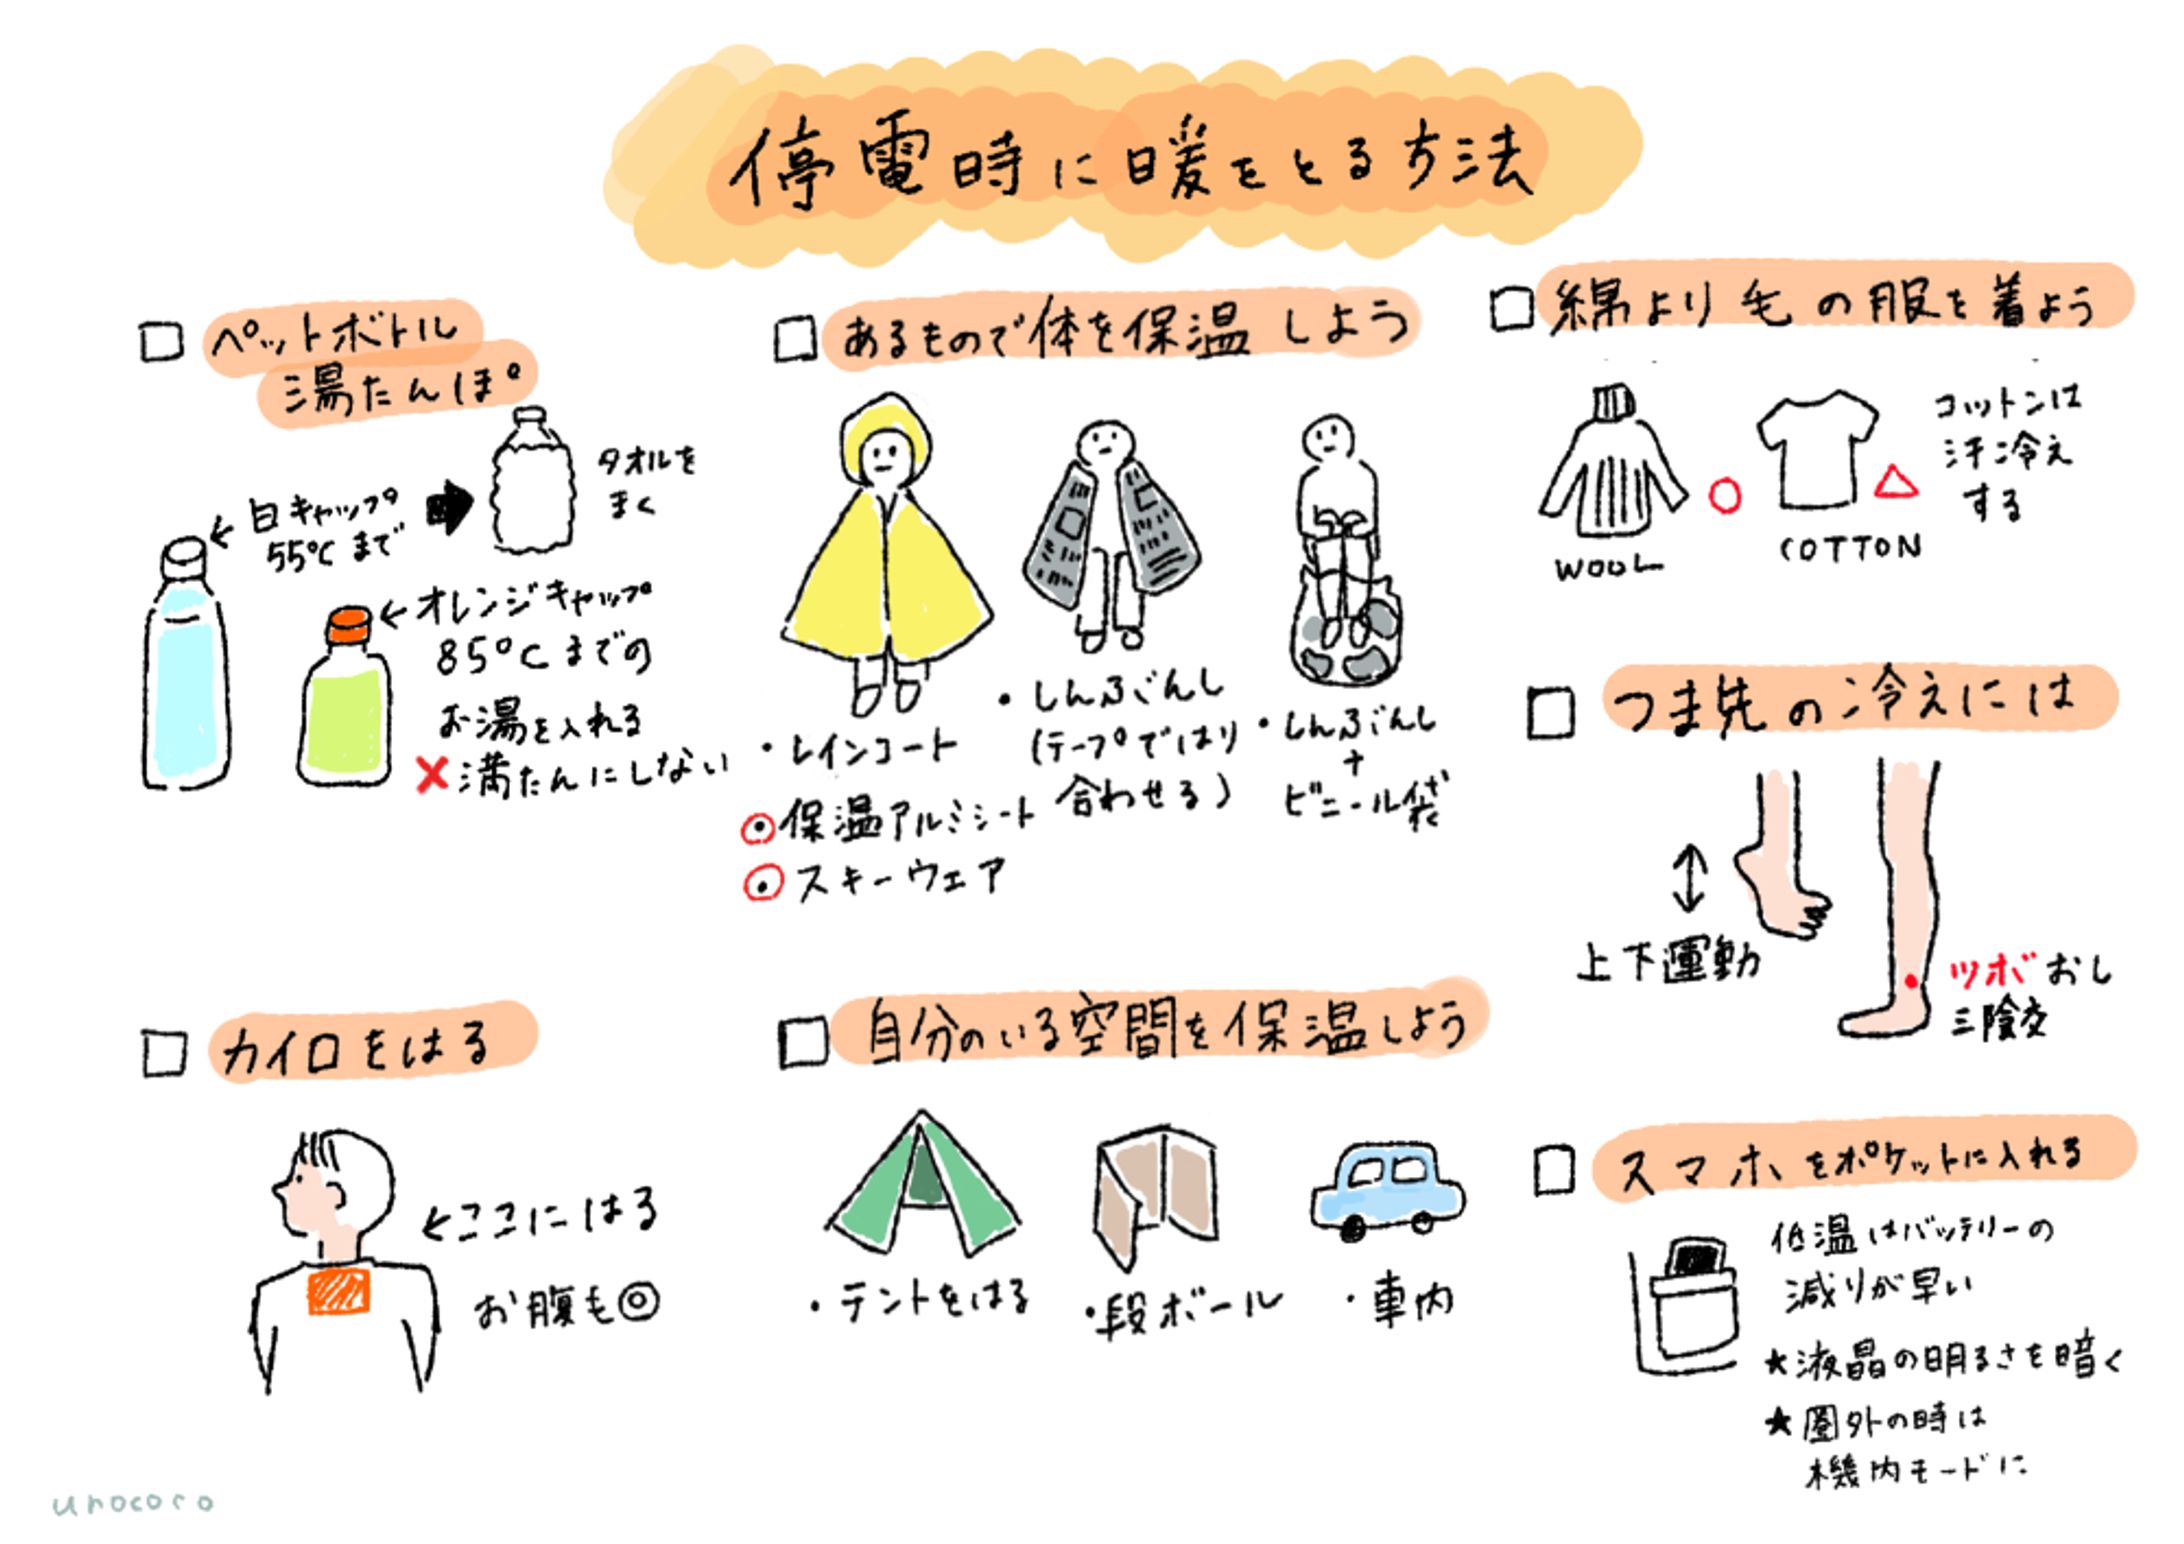 停電時に暖をとる方法
ペットボトル
湯たんぽ
白キャップ
55℃まで
タオルを
まく
オレンジキャップ
85℃までの
お湯を入れる
×満たんにしない
あるもので体を保温しよう
・レインコート
・しんぶんし
(テープではり
合わせる)
・しんぶんし
+
ビニール袋
◉保温アルミシート
◉スキーウェア
綿より毛の服を着よう
WOOL
COTTON
コットンは
汗冷え
する
つま先の冷えには
上下運動
ツボおし
三陰交
カイロをはる
←ここにはる
お腹も◎
自分のいる空間を保温しよう
・テントをはる
・段ボール
・車内
スマホをポケットに入れる
低温はバッテリーの
減りが早い
★液晶の明るさを暗く
★圏外の時は
機内モードに
unocoro